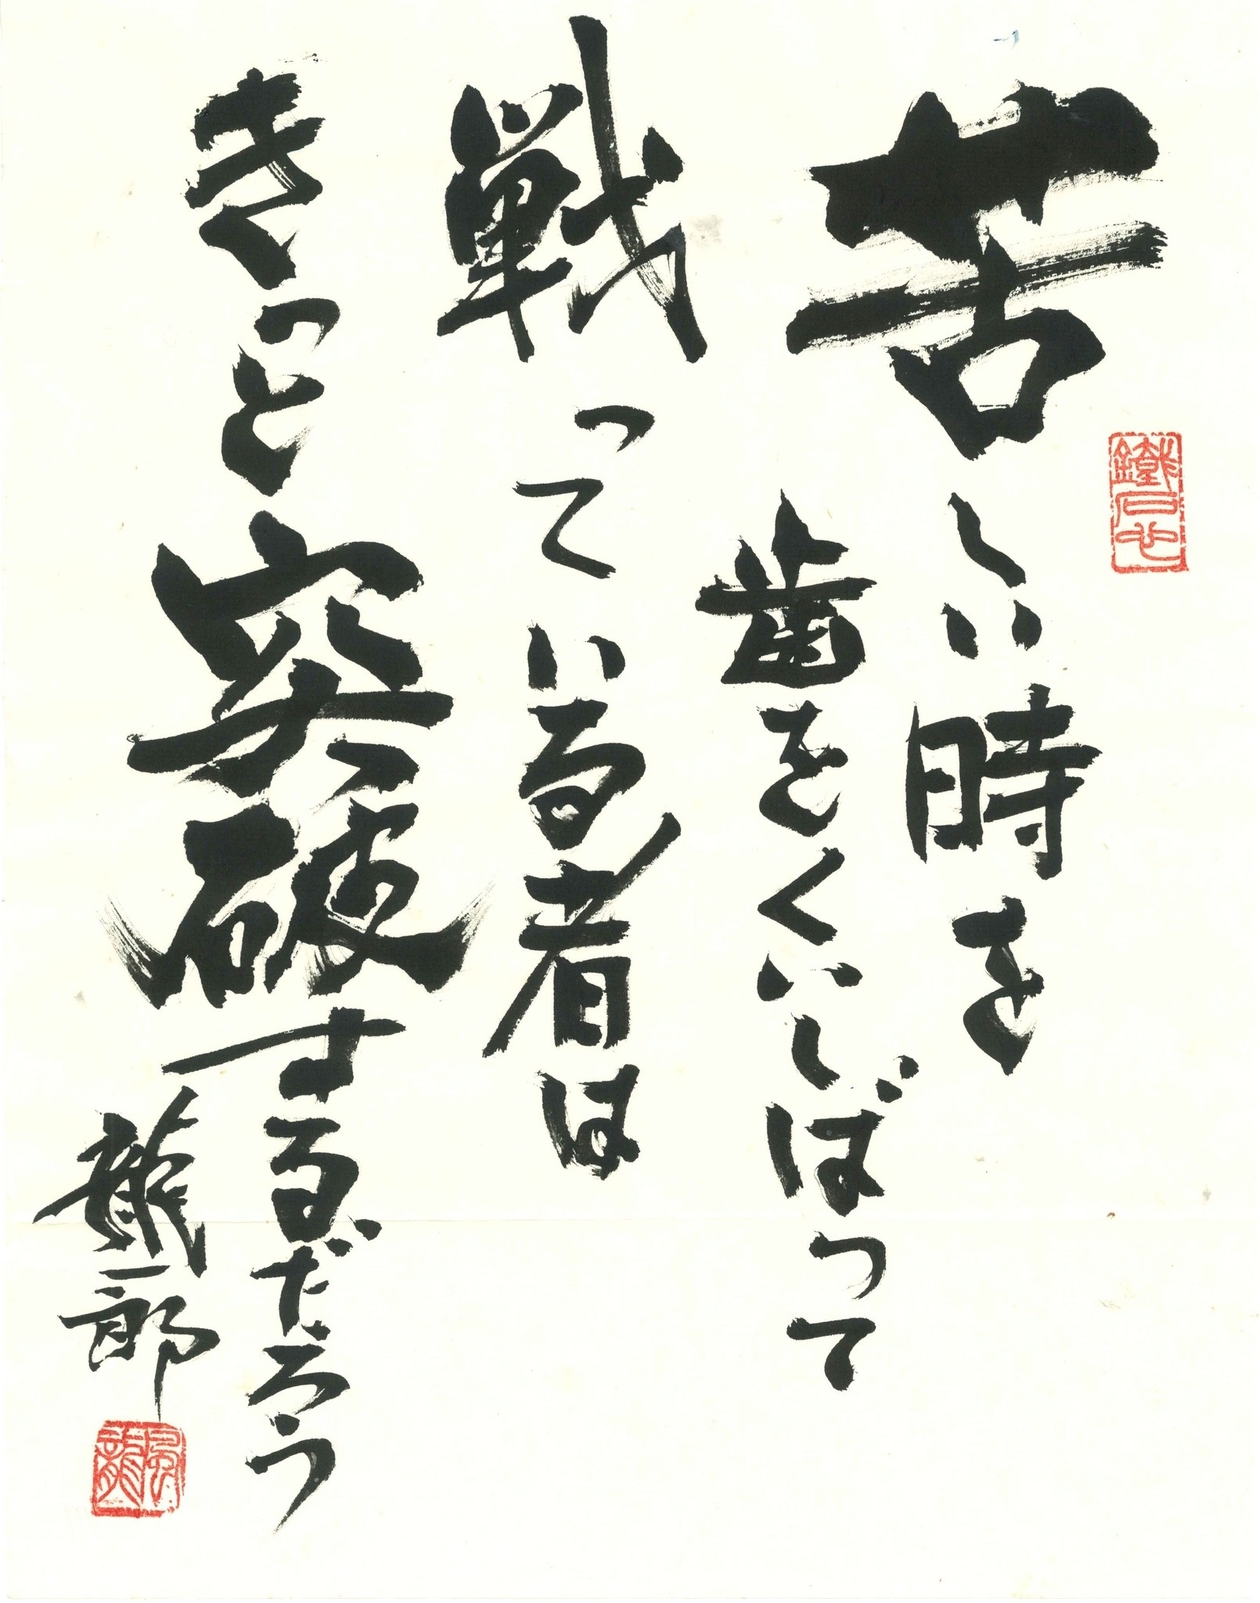 苦しい時を
歯をくいしばって
戦っている者は
きっと突破するだろう
龍一郎
鐵石心
風龍